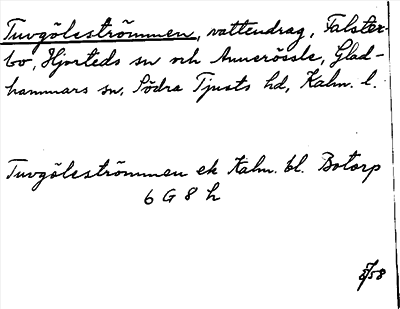 Tuvgölsströmmen, vattendrag, Falster-
bo, Hjorteds sn och Annerössle, Glad-
hammars sn, Södra Tjusts hd, Kalm. l.
Tuvgölsströmmen ek Kalm. bl. Botorp
6 G 8 h